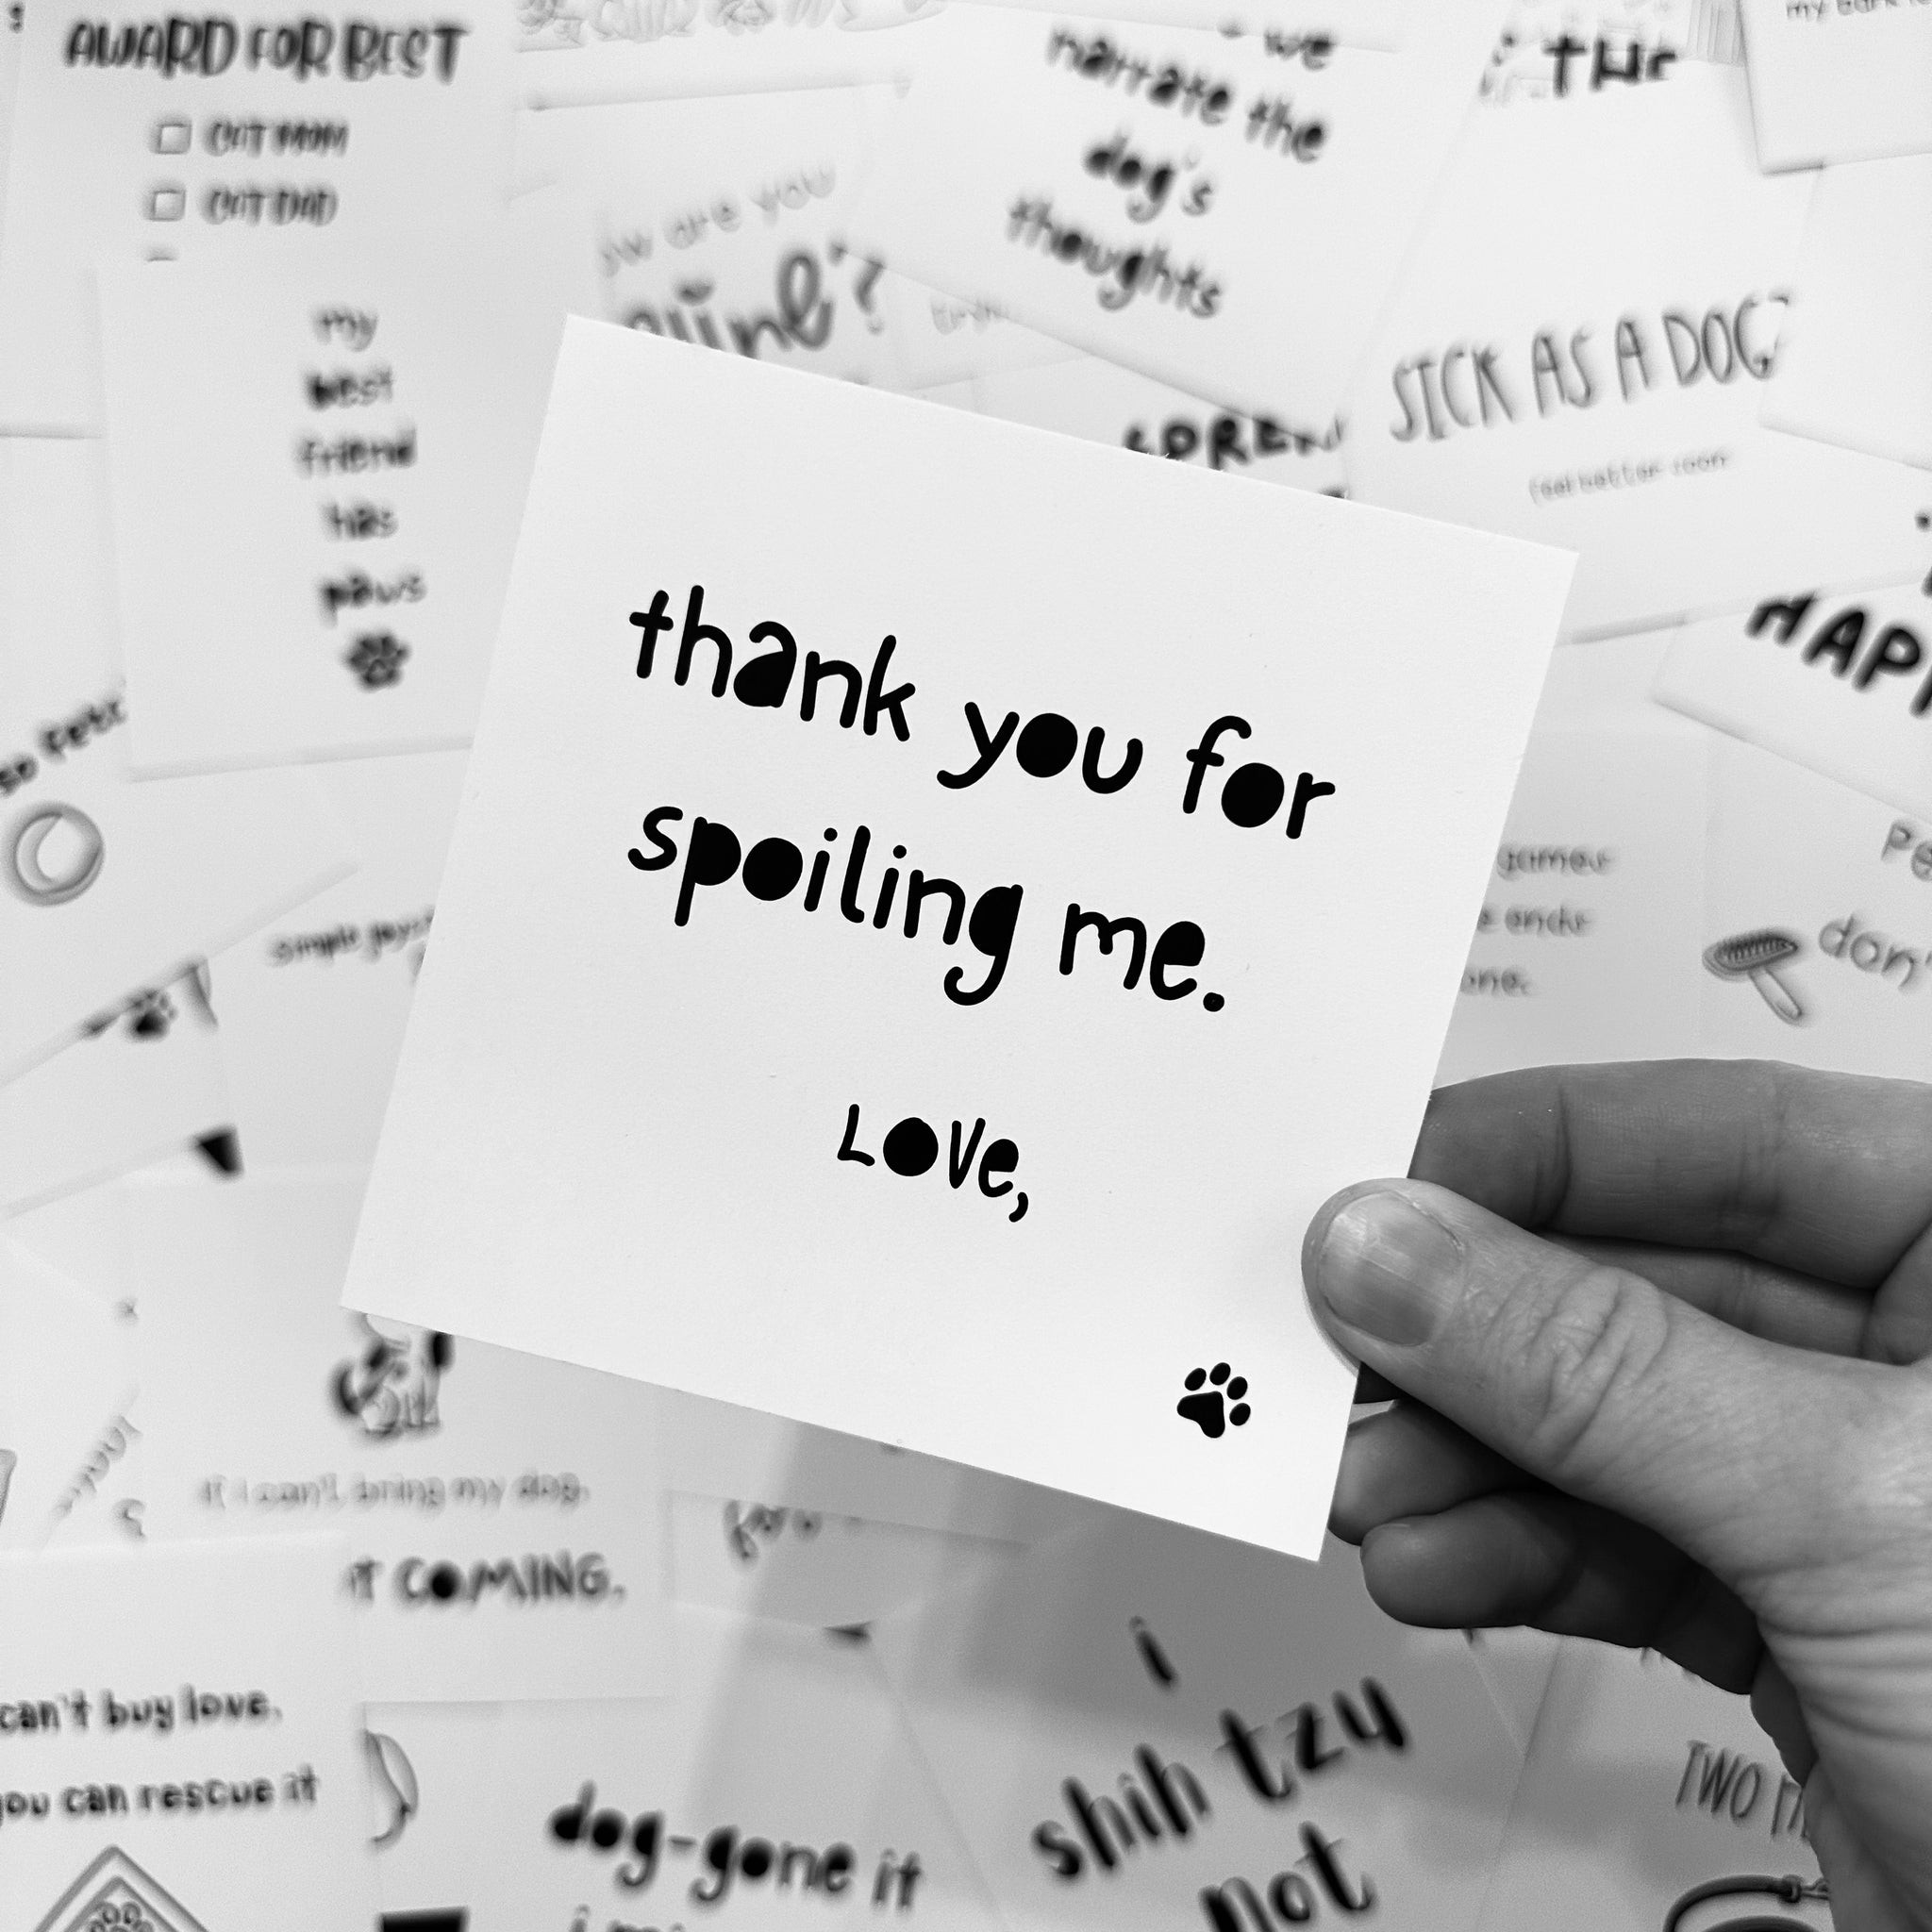 AWARD FOR BEST
CAT MOM
CAT DAD
we
narrate the
dog's
thoughts
are you
my
best
friend
has
paws
SICK AS A DOG?
feel better soon
thank you for
spoiling me.
Love,
so
simple
games
don'
If I can't bring my dog,
COMING.
can't buy love.
you can rescue it
dog-gone it
i
shih tzu
not
TWO